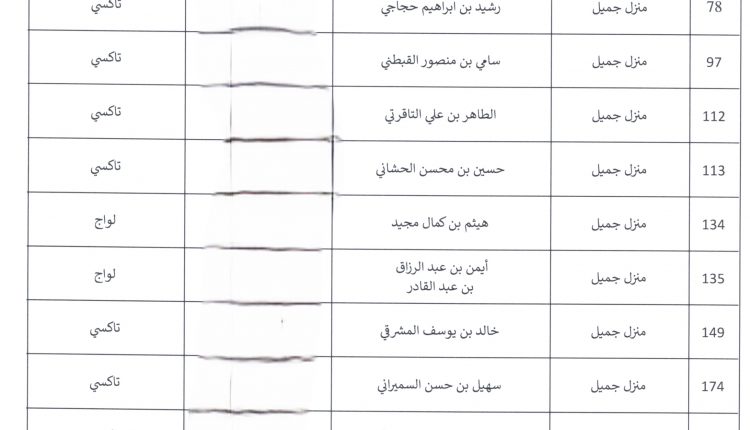 78 منزل جميل رشيد بن ابراهيم حجاجي تاكسي
97 منزل جميل سامي بن منصور القبطني تاكسي
112 منزل جميل الطاهر بن علي التاقرتي تاكسي
113 منزل جميل حسين بن محسن الحشاني تاكسي
134 منزل جميل هيثم بن كمال مجيد لواج
135 منزل جميل أيمن بن عبد الرزاق لواج
بن عبد القادر
149 منزل جميل خالد بن يوسف المشرقي تاكسي
174 منزل جميل سهيل بن حسن السميراني تاكسي